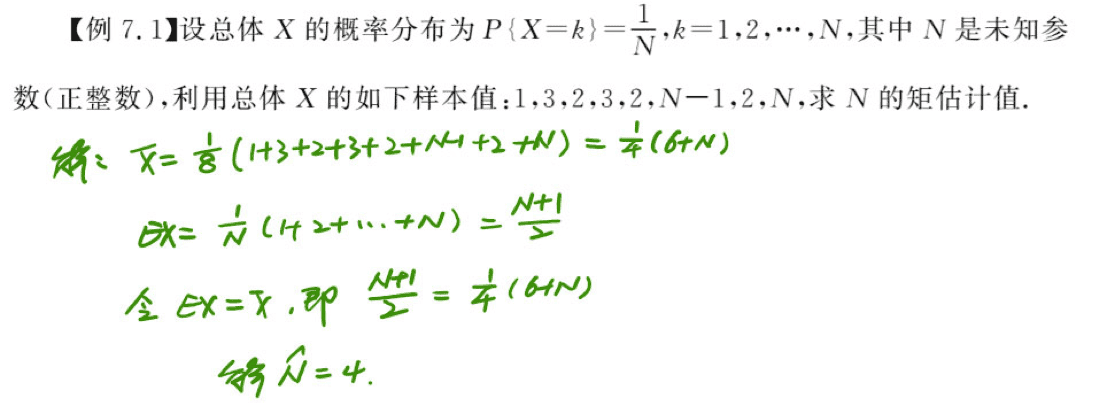 【例 7.1】设总体 X 的概率分布为 P{X=k}=\frac{1}{N},k=1,2,⋯,N,其中 N 是未知参
数(正整数),利用总体 X 的如下样本值:1,3,2,3,2,N-1,2,N,求 N 的矩估计值.
解: \overline{X}=\frac{1}{8}(1+3+2+3+2+N-1+2+N)=\frac{1}{4}(6+N)
EX=\frac{1}{N}(1+2+⋯+N)=\frac{N+1}{2}
令 EX=\overline{X},即 \frac{N+1}{2}=\frac{1}{4}(6+N)
解得 \hat{N}=4.